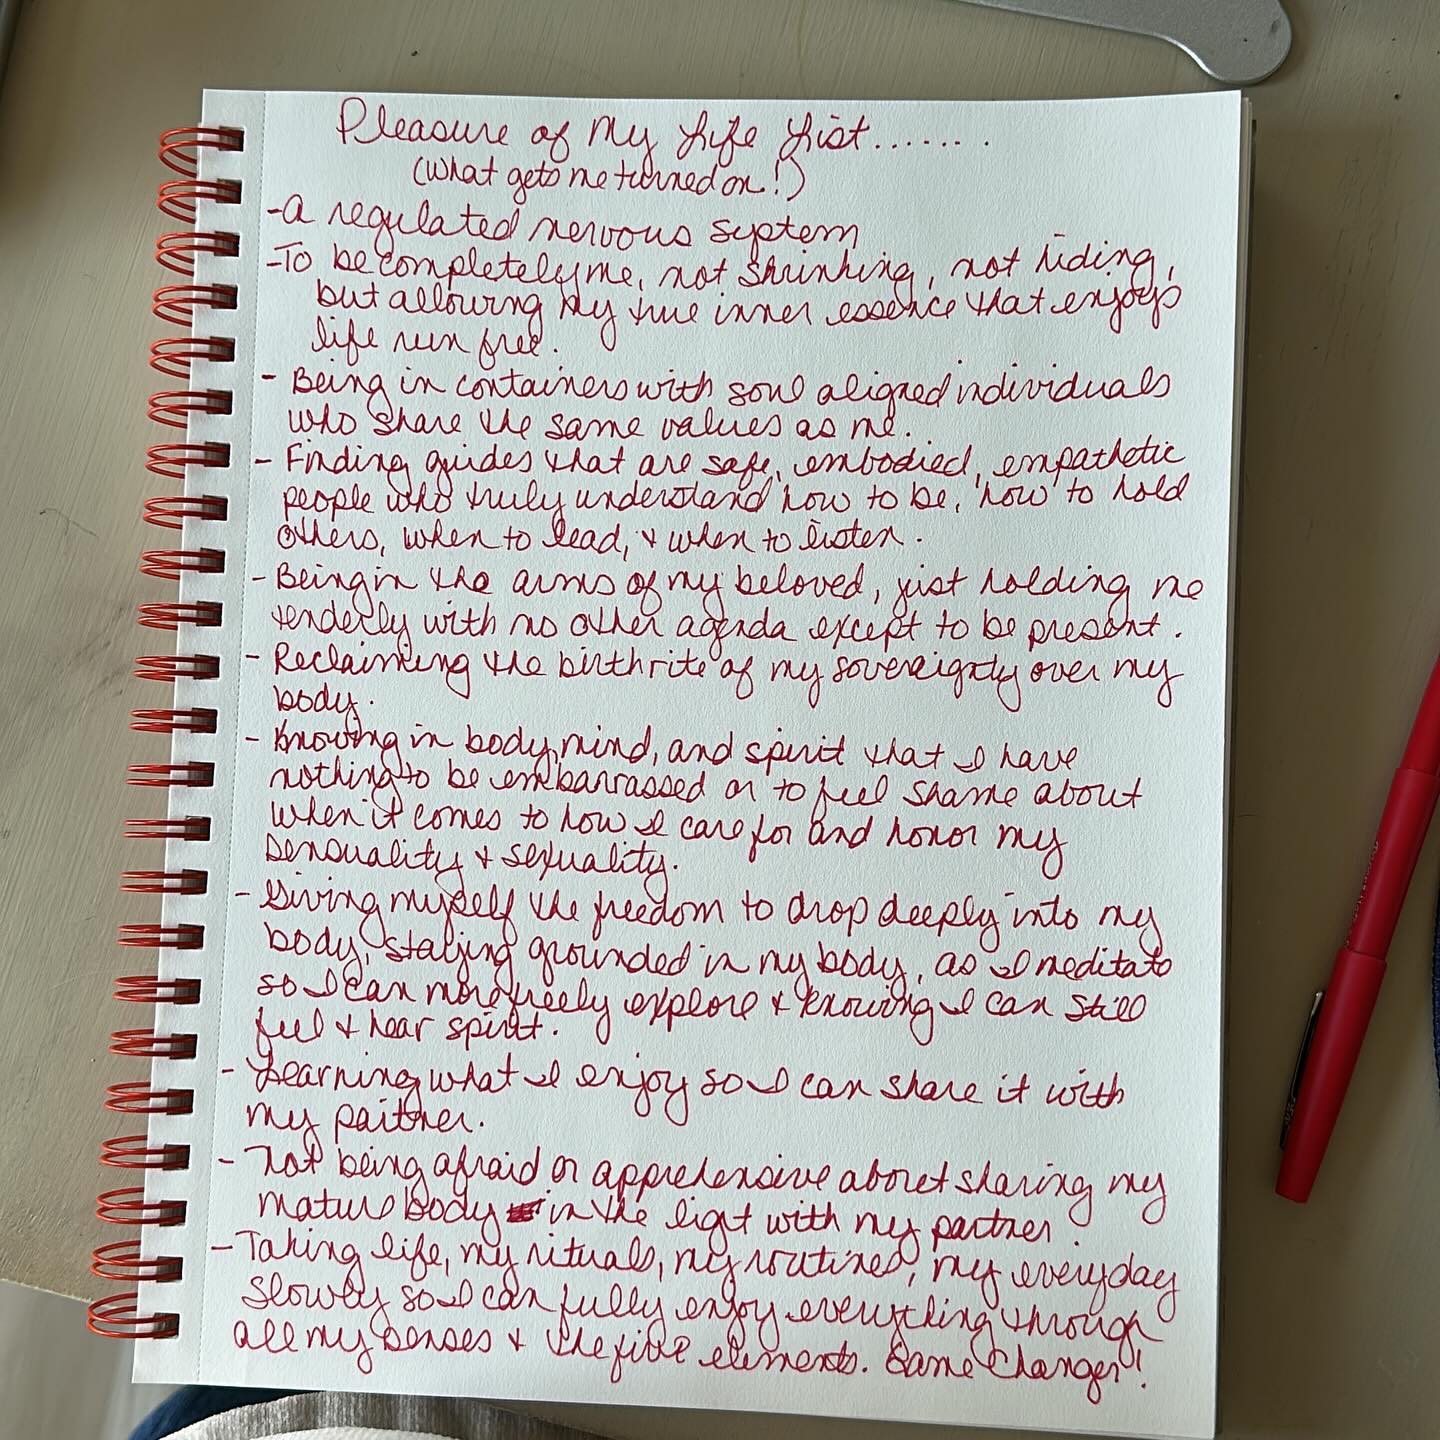 Pleasure of My Life List.......
(What gets me turned on!)
-A regulated nervous system
-To be completely me, not shrinking, not hiding,
but allowing my true inner essence that enjoys
life run free.
- Being in containers with soul aligned individuals
who share the same values as me.
- Finding guides that are safe, embodied, empathetic
people who truly understand how to be, how to hold
others, when to lead, & when to listen.
- Being in the arms of my beloved, just holding me
tenderly with no other agenda except to be present.
- Reclaiming the birthrite of my sovereignty over my
body.
- Knowing in body, mind, and spirit that I have
nothing to be embarrassed or to feel shame about
when it comes to how I care for and honor my
sensuality & sexuality.
- Giving myself the freedom to drop deeply into my
body, staying grounded in my body, as I meditate
so I can more freely explore & knowing I can still
feel & hear spirit.
- Learning what I enjoy so I can share it with
my partner.
- Not being afraid or apprehensive about sharing my
mature body in the light with my partner.
- Taking life, my rituals, my routines, my everyday
slowly so I can fully enjoy everything through
all my senses & the five elements. Game Changer!